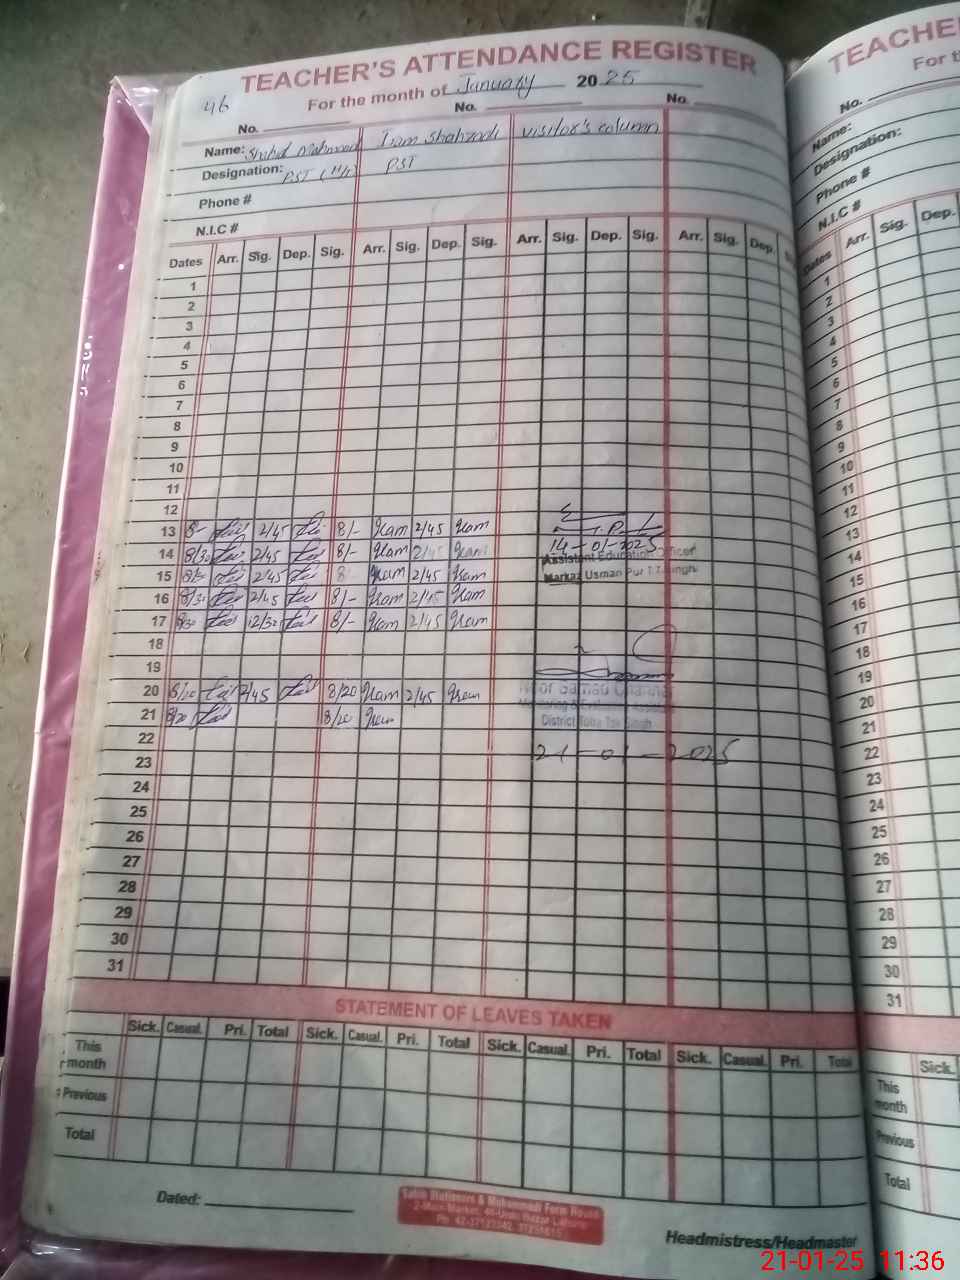 TEACHER'S ATTENDANCE REGISTER
46 For the month of January 2025
No. No. No.
Name: Shahid Mahmood Iram Shahzadi visitor's column
Designation: PST (H/T) PST
Phone #
N.I.C #
Dates Arr. Sig. Dep. Sig. Arr. Sig. Dep. Sig. Arr. Sig. Dep. Sig. Arr. Sig. Dep.
1
2
3
4
5
6
7
8
9
10
11
12
13 8- 2/45 8/- 2/45
14 8/30 2/45 8/- 2/45 14-01-2025
Assistant Education Officer
15 8/30 2/45 8 2/45 Markaz Usman Pur T.T.Singh
16 8/30 2/45 8/- 2/45
17 8/30 12/30 8/- 2/45
18
19
20 8/20 2/45 8/20 2/45
Monitoring & Evaluation Assistant
21 8/20 8/20 District Toba Tek Singh
22
23 21-01-2025
24
25
26
27
28
29
30
31
STATEMENT OF LEAVES TAKEN
Sick. Casual. Pri. Total Sick. Casual. Pri. Total Sick. Casual. Pri. Total Sick. Casual. Pri. Total
This month
Previous
Total
Dated:
2-Main Market, 40-Urdu Bazar Lahore
Headmistress/Headmaster
TEACHE
For t
No.
Name:
Designation:
Phone #
N.I.C #
Dates Arr. Sig. Dep.
1
2
3
4
5
6
7
8
9
10
11
12
13
14
15
16
17
18
19
20
21
22
23
24
25
26
27
28
29
30
31
Sick.
This month
Previous
Total
21-01-25 11:36